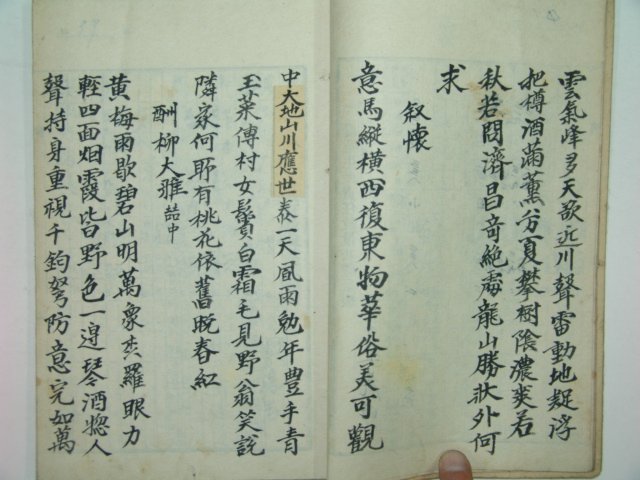 雲氣峰多天欲近川聲雷動地疑浮
把樽酒滿薰分夏攀樹陰濃爽若
秋若問濟昌奇絶處龍山勝狀外何
求
叙懷
意馬縱橫西復東物華俗美可觀
中大地山川應世泰一天風雨勉年豊手青
玉菜傳村女鬢白霜毛見野翁笑說
隣家何所有桃花依舊晚春紅
酬柳大雅喆中
黃梅雨歇碧山明萬象森羅眼力
輕四面烟霞皆野色一邉琴酒惣人
聲持身重視千鈞弩防意完如萬